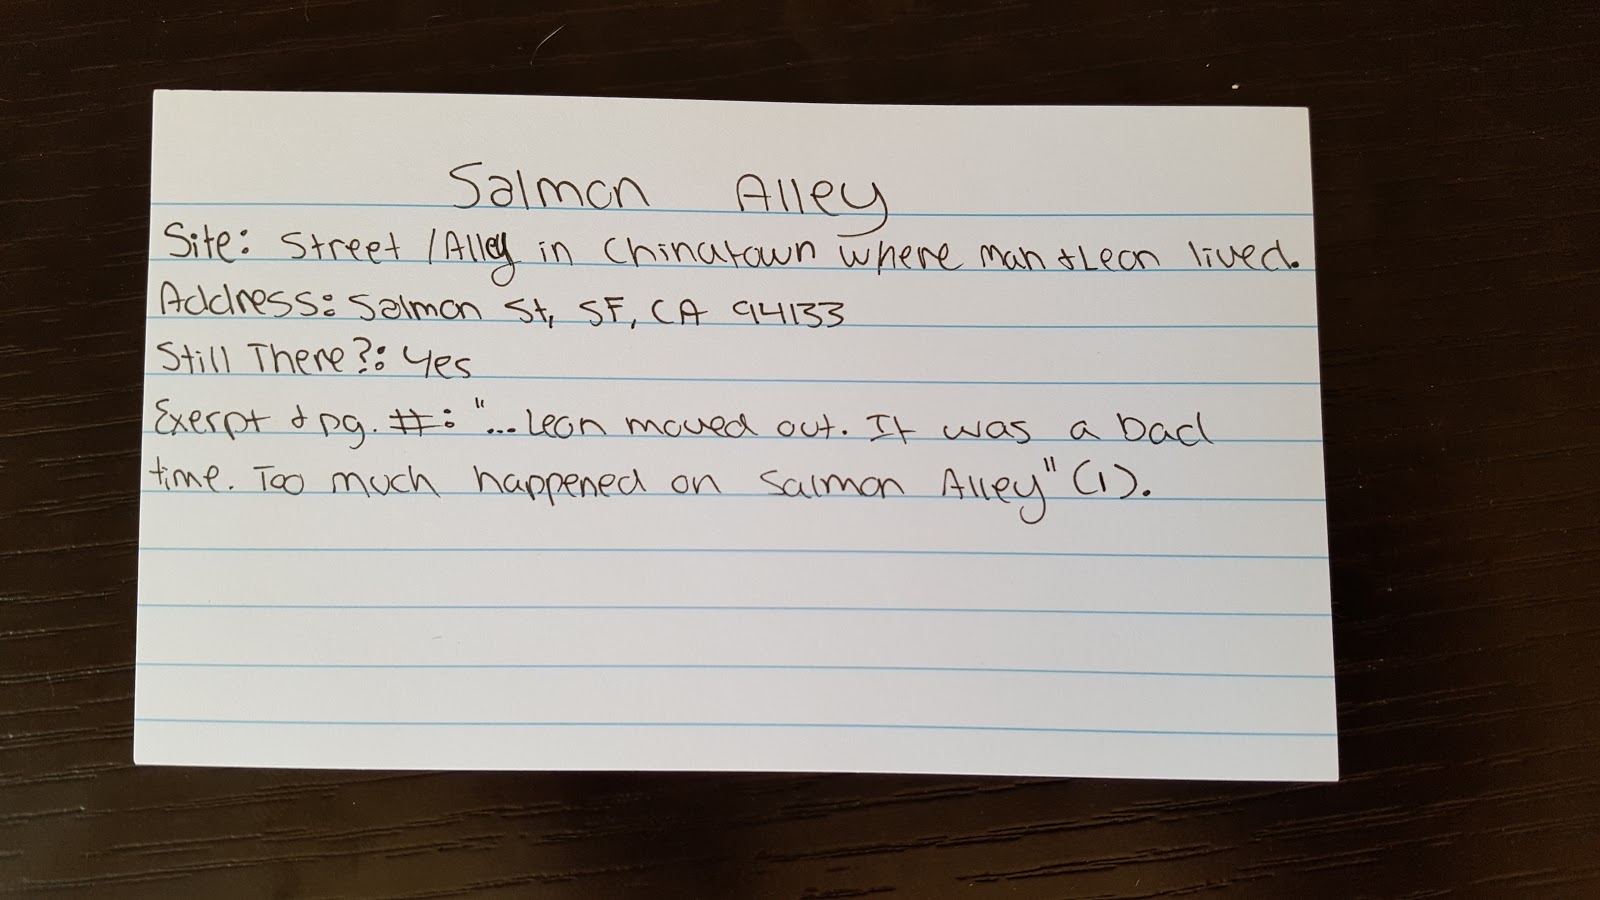 Salmon Alley
Site: Street / Alley in Chinatown where Mah & Leon lived.
Address: Salmon St, SF, CA 94133
Still There?: Yes
Exerpt & pg. #: "...Leon moved out. It was a bad
time. Too much happened on Salmon Alley" (1).